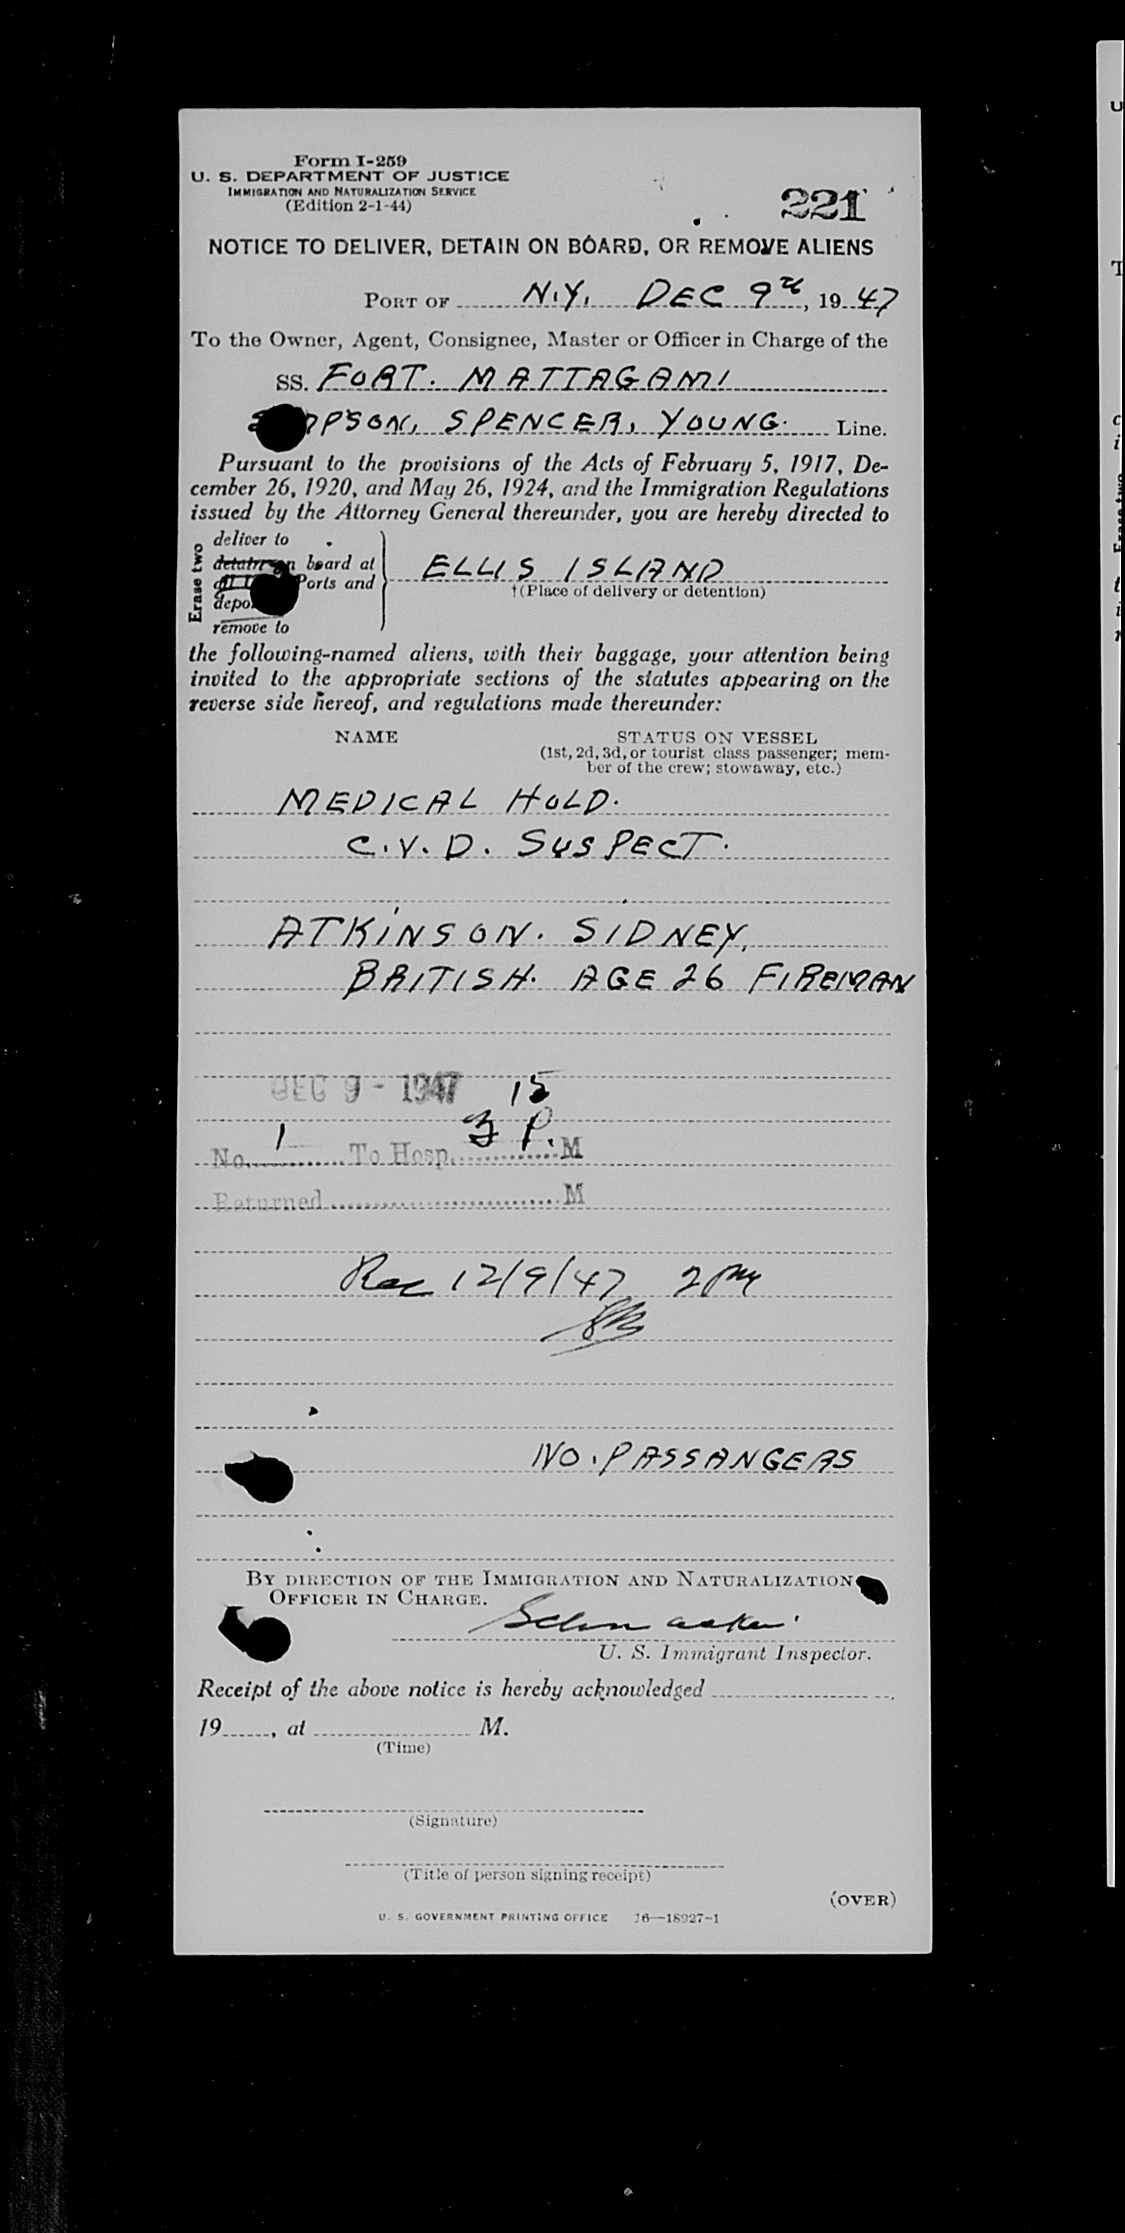 Form I-259
U. S. DEPARTMENT OF JUSTICE
IMMIGRATION AND NATURALIZATION SERVICE
(Edition 2-1-44)
221
NOTICE TO DELIVER, DETAIN ON BOARD, OR REMOVE ALIENS
PORT OF N.Y. DEC 9th, 1947
To the Owner, Agent, Consignee, Master or Officer in Charge of the
SS. FORT. MATTAGAMI
SPENCER, YOUNG. Line.
Pursuant to the provisions of the Acts of February 5, 1917, De-
cember 26, 1920, and May 26, 1924, and the Immigration Regulations
issued by the Attorney General thereunder, you are hereby directed to
Erase two
deliver to
board at
Ports and
remove to
ELLIS ISLAND
†(Place of delivery or detention)
the following-named aliens, with their baggage, your attention being
invited to the appropriate sections of the statutes appearing on the
reverse side hereof, and regulations made thereunder:
NAME STATUS ON VESSEL
(1st, 2d, 3d, or tourist class passenger; mem-
ber of the crew; stowaway, etc.)
MEDICAL HOLD.
C.V.D. SUSPECT.
ATKINSON. SIDNEY.
BRITISH. AGE 26 FIREMAN
DEC 9 - 1947 15
No. 1 To Hosp. 3 P. M
Returned M
Rec 12/9/47 2 PM
NO. PASSANGERS
BY DIRECTION OF THE IMMIGRATION AND NATURALIZATION
OFFICER IN CHARGE.
U. S. Immigrant Inspector.
Receipt of the above notice is hereby acknowledged
19, at M.
(Time)
(Signature)
(Title of person signing receipt)
(OVER)
U. S. GOVERNMENT PRINTING OFFICE 16—18927-1